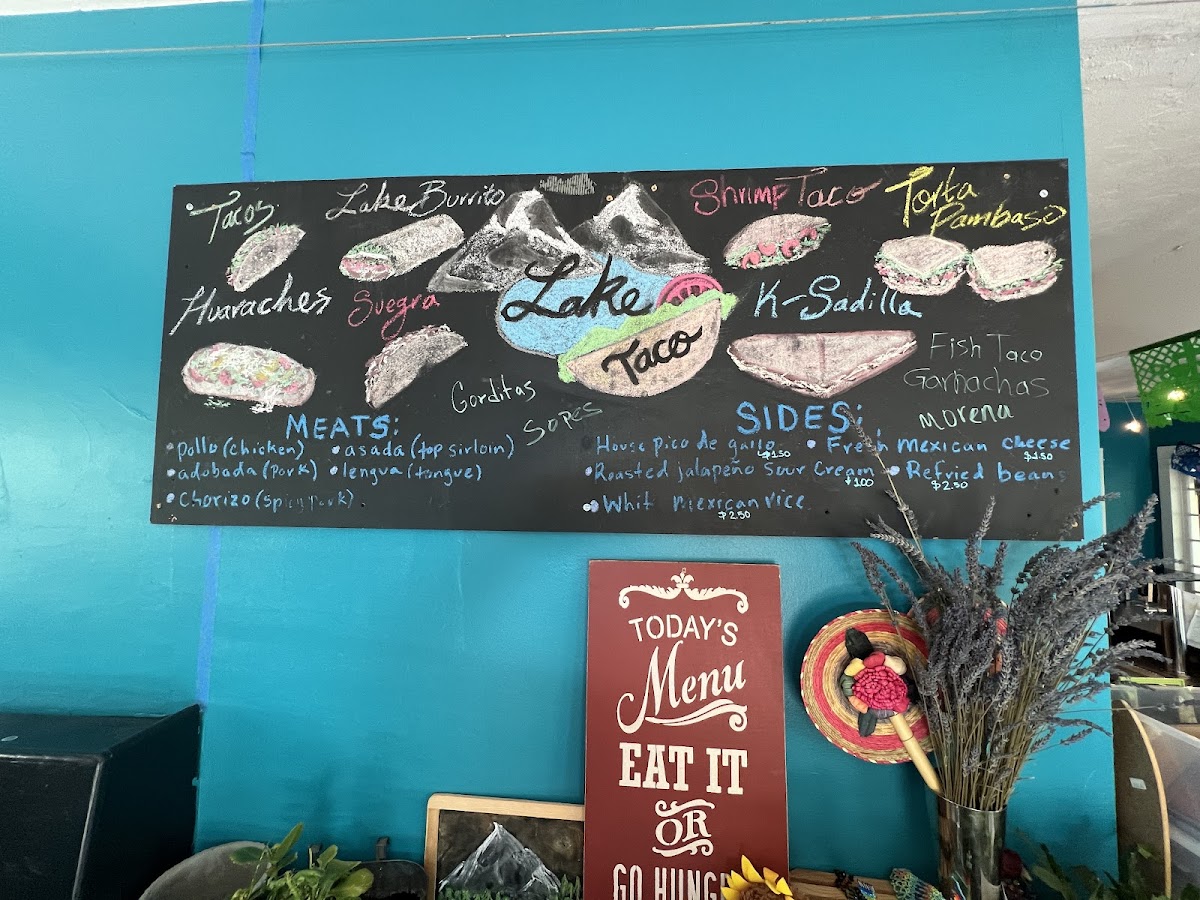 Tacos
Lake Burrito
Shrimp Taco
Torta
Pambaso
Huaraches
Suegra
Lake
Taco
K-Sadilla
Fish Taco
Garnachas
Morena
Gorditas
Sopes
MEATS:
• Pollo (chicken) • asada (top sirloin)
• adobada (Pork) • lengua (tongue)
• Chorizo (Spicy Pork).
SIDES:
House pico de gallo $1.50 • Fresh Mexican Cheese $1.50
• Roasted jalapeño Sour Cream $1.00 • Refried beans $2.50
• Whit Mexican rice $2.50
TODAY'S
Menu
EAT IT
OR
GO HUNG